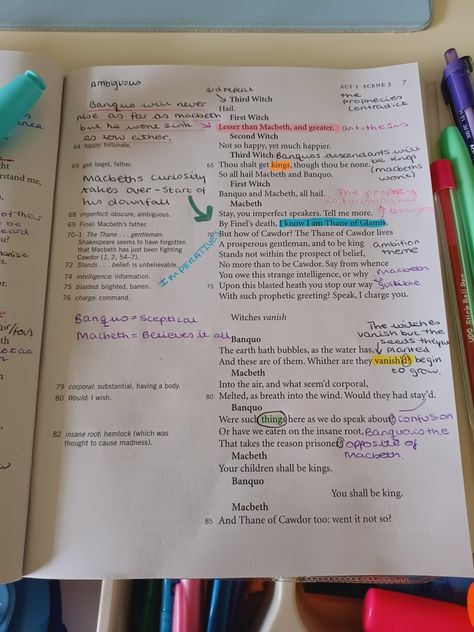 AMBIGUOUS
3rd repeat
ACT 1 SCENE 3 7
the
prophecies
contradick
Third Witch
Hail.
Banquo will never
rise as far as macbeth
but he wont sink
as low either.
First Witch
Lesser than Macbeth, and greater.
antithesis
Second Witch
64 happy: fortunate.
Not so happy, yet much happier.
Third Witch
Banquos ascendants will
be king
(macbeths
wont)
65 get: beget, father.
65 Thou shalt get kings, though thou be none.
So all hail Macbeth and Banquo.
First Witch
Banquo and Macbeth, all hail.
Macbeths curiosity
takes over - start of
his downfall
The prophecy
is
Macbeth
68 imperfect: obscure, ambiguous.
Stay, you imperfect speakers. Tell me more.
69 Finel: Macbeth's father.
By Finel's death, I know I am Thane of Glamis,
70-1 The Thane . . . gentleman:
Shakespeare seems to have forgotten
that Macbeth has just been fighting
Cawdor (1, 2, 54-7).
IMPERATIVE
70 But how of Cawdor? The Thane of Cawdor lives
A prosperous gentleman, and to be king
ambition
theme
72 Stands . . . belief: is unbelievable.
Stands not within the prospect of belief,
No more than to be Cawdor. Say from whence
74 intelligence: information.
You owe this strange intelligence, or why
macbeth
75 blasted: blighted, barren.
75 Upon this blasted heath you stop our way
76 charge: command.
With such prophetic greeting? Speak, I charge you.
Banquo = sceptical
Macbeth = Believes it all
Witches vanish
The witches
vanish but the
seeds they
planted
begin
to grow.
Banquo
The earth hath bubbles, as the water has,
And these are of them. Whither are they vanish'd?
Macbeth
79 corporal: substantial, having a body.
Into the air, and what seem'd corporal,
80 Would: I wish.
80 Melted, as breath into the wind. Would they had stay'd.
Banquo
Were such things here as we do speak about?
confusion
82 insane root: hemlock (which was
thought to cause madness).
Or have we eaten on the insane root,
Banquo is the
opposite of
Macbeth.
That takes the reason prisoner?
Macbeth
Your children shall be kings.
Banquo
You shall be king.
Macbeth
85 And Thane of Cawdor too: went it not so?